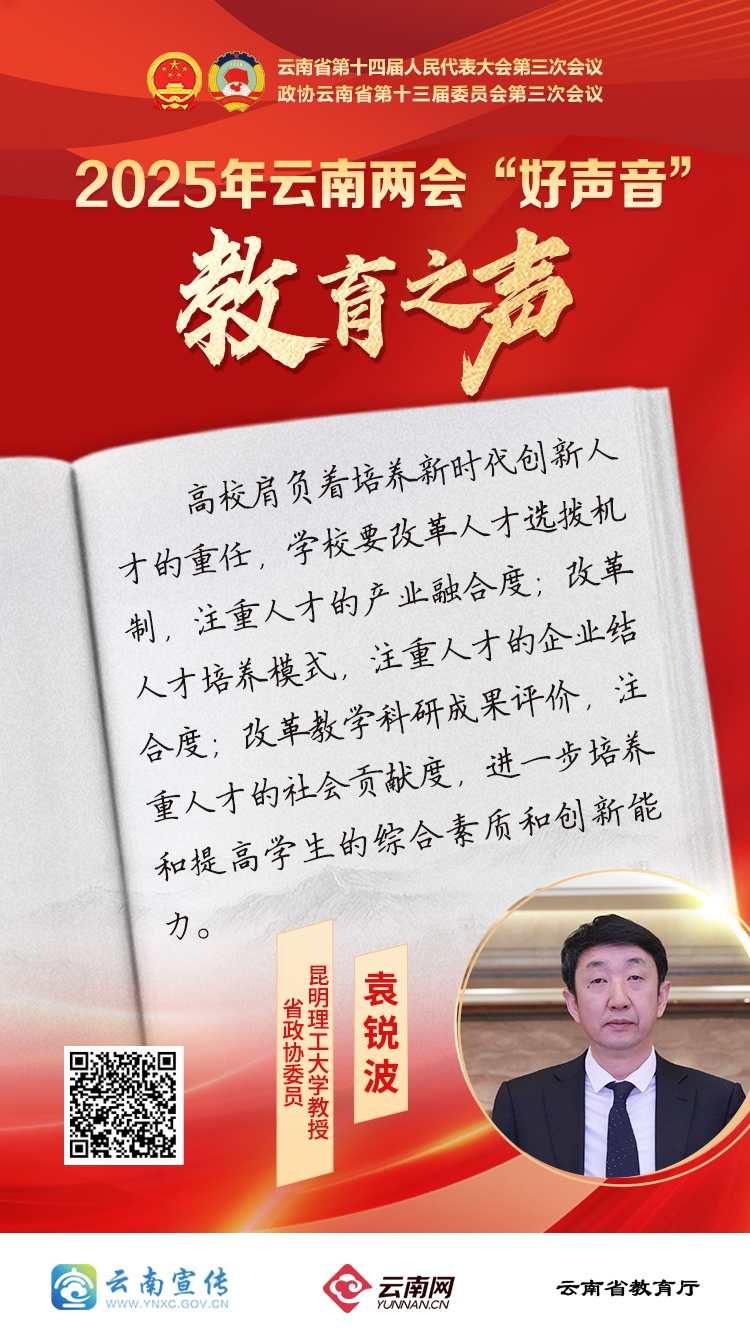 云南省第十四届人民代表大会第三次会议
政协云南省第十三届委员会第三次会议
2025年云南两会“好声音”
教育之声
高校肩负着培养新时代创新人
才的重任，学校要改革人才选拨机
制，注重人才的产业融合度；改革
人才培养模式，注重人才的企业结
合度；改革教学科研成果评价，注
重人才的社会贡献度，进一步培养
和提高学生的综合素质和创新能
力。
袁锐波
昆明理工大学教授
省政协委员
云南宣传
WWW.YNXC.GOV.CN
云南网
YUNNAN.CN
云南省教育厅